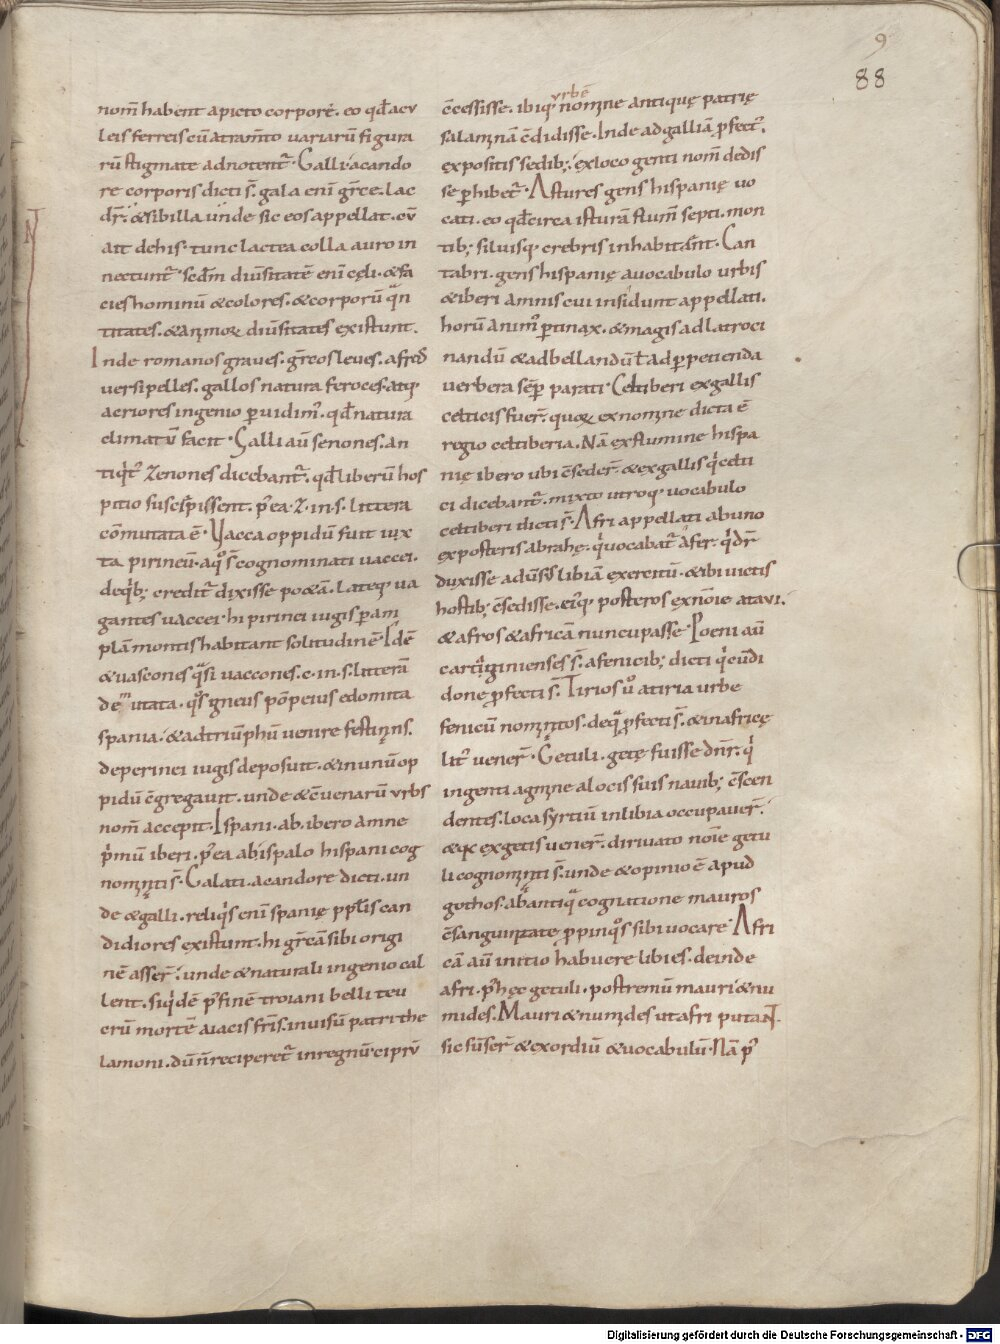 9
88
nom̄ habent a picto corpore. eo qđ acu
leis ferreis cū atram̄to uariarū figura
rū stigmate adnotent̄. Galli a cando
re corporis dicti s̄. gala enī grece. lac
dr̄. & sibilla unde sic eos appellat. cū
ait de his. tunc lactea colla auro in
nectunt̄. Secđm diuersitatē enī cęli. & fa
cies hominū & colores. & corporū qān
titates. & animorꝝ diuersitates existunt.
Inde romanos graues. grecos leues. afros
uersipelles. gallos natura feroces. atq;
acriores ingenio peruidim'. qđ natura
climatū facit. Galli aū senones. an
tiq̇t' zenones dicebant̄. qđ liberū hos
pitio suscepissent. p'ea. z. in. s. littera
cōmutata ē. Vacca oppidū fuit iux
ta pirineū. a quo s̄ cognominati uaccei.
de qib; credit̄ dixisse poetā. lateq; ua
gantes uaccei. hi pirinei iugis peram
plā montis habitant solitudinē. Idē
& uascones quasi uaccones. c. in. s. litterā
demutata. quos gneus pōpeius edomita
spania. & ad triūphū uenire festinans.
de perinei iugis deposuit. & in unū op
pidū c̄gregauit. unde & c̄uenarū urbs
nom̄ accepit. Ispani. ab. ibero amne
p̓mū iberi. p'ea ab ispalo hispani cog
nominati s̄. Galati. a candore dicti. un
de & galli. reliq̇s enī spanię pplis can
didiores existunt. hi grecā sibi origi
nē asser̄. unde & naturali ingenio cal
lent. siq̇dē p' finē troiani belli teu
crū mortē aiacis fr̄is. inuisū patri the
lamoni. dū n̄ reciperet̄ in regnū. cipru
urbē
c̄cessisse. ibiq; nomine antiquę patrię
salaminā c̄didisse. Inde ad galliā ꝓfect'.
expositis sedib; ex loco genti nom̄ dedis
se perhibet̄. Astures gens hispanię uo
cati. eo qđ circa isturā flum̄ septi. mon
tib; siluisq; crebris inhabitant. Can
tabri. gens hispanię a uocabulo urbis
& iberi amnis cui insidunt appellati.
horū anim' pertinax. & magis ad latroci
nandū & ad bellandū ł ad perpetienda
uerbera sēp parati. Celtiberi ex gallis
celticis fuer̄. quorꝝ ex nomine dicta ē
regio celtiberia. Nā ex flumine hispa
nię ibero ubi c̄seder̄. & ex gallis q̇ celti
ci dicebant̄. mixto utroq; uocabulo
celtiberi dicti s̄. Afri appellati ab uno
ex posteris abrahę. q̇ uocabat̄ afer. q̇ dr̄
duxisse aduersus libiā exercitū. & ibi uictis
hostib; c̄sedisse. eiusq; posteros ex nōie ataui.
& afros & africā nuncupasse. Poeni aū
cartaginienses s̄. a fenicib; dicti q̇ cū di
done ꝓfecti s̄. Tirios uo a tiria urbe
fenicū nominatos. de qua ꝓfecti s̄. & in africę
lit' uener̄. Getuli. getę fuisse dn̄r. q̇
ingenti agmine a locis suis nauib; c̄scen
dentes. loca syrtiū in libia occupauer̄.
& qa ex getis uener̄. diriuato nōie getu
li cognominati s̄. unde & opinio ē apud
gothos. ab antiqua cognatione mauros
c̄sanguinitate ꝓpinquos sibi uocare. Afri
cā aū initio habuere libies. deinde
afri. p' hęc getuli. postremū mauri & nu
mides. Mauri & numides ut afri putant.
sic sūser̄ & exordiū & uocabulū. Nā p'